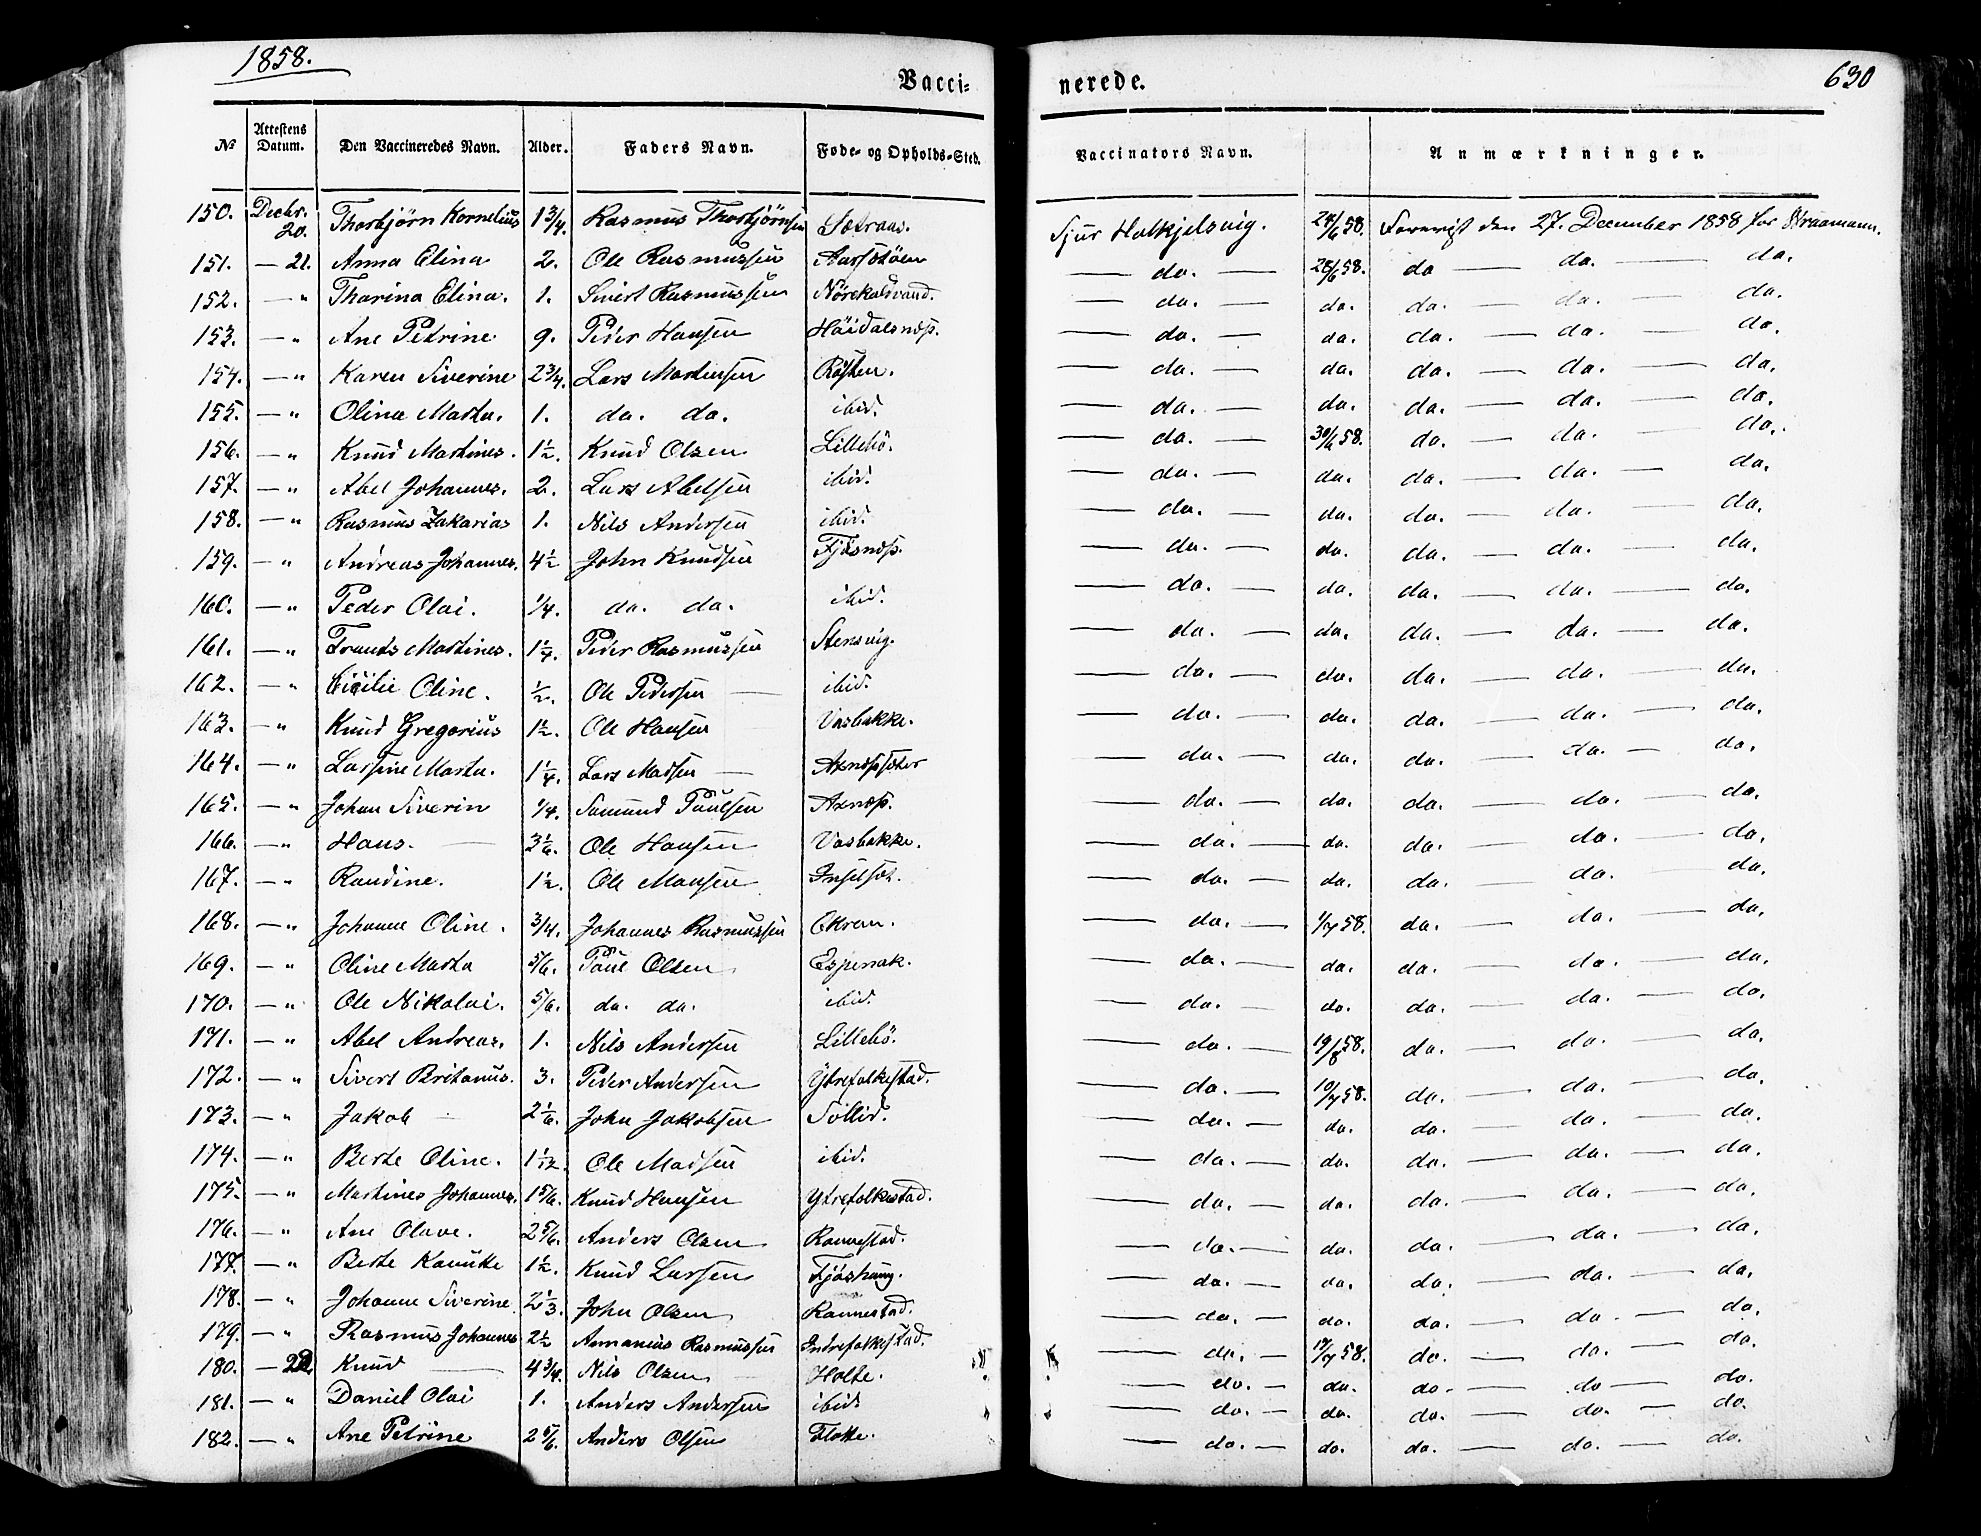 1858.
Vacci-
nerede.
630
No Attestens Datum. Den Vaccineredes Navn. Alder. Faders Navn. Føde- og Opholds-Sted. Vaccinators Navn. Anmærkninger.
150. Decbr. 20. Thorbjørn Kornelius 1 3/4. Rasmus Thorbjørnsen Sætraas. Sjur Holkjelsvig. 24/6 58. Foreviist den 27. December 1858 for Straamann.
151. — 21. Anna Elina 2. Ole Rasmussen Aarsetøen — do. — 28/6 58. do — do. — do.
152. — " Tharina Elina. 1. Sivert Rasmussen Nørekalvand. — do. — do. do. — do. — do.
153. — " Ane Petrine 9. Peder Hansen Høidalsnæs. — do. — do. do. — do. — do.
154. — " Karen Siverine 2 3/4. Lars Martinsen Røsten. — do. — do. do. — do. — do.
155. — " Olina Marta. 1. do. do. ibid. — do. — do. do. — do. — do.
156. — " Knud Martines. 1 1/2. Knud Olsen Lillebø. — do. — 30/6 58. do. — do. — do.
157. — " Abel Johannes. 2. Lars Abelsen ibid. — do. — do. do. — do. — do.
158. — " Rasmus Zakarias 1. Nils Andersen ibid. — do. — do. do. — do. — do.
159. — " Andreas Johannes. 4 1/2 John Knudsen Fjøsnæs. — do. — do. do. — do. — do.
160. — " Peder Olai. 1/4. do. do. ibid. — do. — do. do. — do. — do.
161. — " Frants Martines. 1 1/4. Peder Rasmussen Stensvig. — do. — do. do. — do. — do.
162. — " Cicilie Oline. 1/2. Ole Pedersen — ibid. — do. — do. do. — do. — do.
163. — " Knud Gregorius 1 1/2. Ole Hansen Vasbakke. — do. — do. do. — do. — do.
164. — " Larsine Marta. 1 1/4. Lars Madsen — Axnæssæter — do. — do. do. — do. — do.
165. — " Johan Siverin 1/4. Samund Paulsen Axnæs. — do. — do. do. — do. — do.
166. — " Hans. — 3 1/6. Ole Hansen Vasbakke. — do. — do. do. — do. — do.
167. — " Randine. 1 1/2. Ole Monsen — do. — do. do. — do. — do.
168. — " Johanne Oline. 3/4. Johannes Rasmussen — do. — 1/7 58. do. — do. — do.
169. — " Oline Marta 5/6. Paul Olsen Espenak. — do. — do. do. — do. — do.
170. — " Ole Nikolai. 5/6. do. do. ibid. — do. — do. do. — do. — do.
171. — " Abel Andreas. 1. Nils Andersen Lillebø. — do. — 19/8 58. do. — do. — do.
172. — " Sivert Britanus. 3. Peder Andersen Ytrefolkestad. — do. — 10/7 58. do. — do. — do.
173. — " Jakob — 2 1/6. John Jakobsen Sollid. — do. — do. do. — do. — do.
174. — " Berte Oline. 1 1/12. Ole Madsen ibid. — do. — do. do. — do. — do.
175. — " Martines Johannes. 1 5/6. Knud Hansen Ytrefolkestad. — do. — do. do. — do. — do.
176. — " Ane Olave. 2 5/6. Anders Olsen Rannestad. — do. — do. do. — do. — do.
177. — " Berte Kanutte 1 1/2. Knud Larsen Fjøshaug. — do. — do. do. — do. — do.
178. — " Johanne Siverine. 2 1/3. John Olsen Rannestad. — do. — do. do. — do. — do.
179. — " Rasmus Johannes 2 1/2 Ammanius Rasmussen Indrefolkestad. — do. — 17/7 58. do. — do. — do.
180. — 22. Knud — 4 3/4. Nils Olsen Holte. — do. — do. do. — do — do.
181. — " Daniel Olai 1. Anders Andersen ibid — do. — do. do. — do. — do.
182. — " Ane Petrine 2 5/6. Anders Olsen Flotte. — do. — do. do. — do. — do.